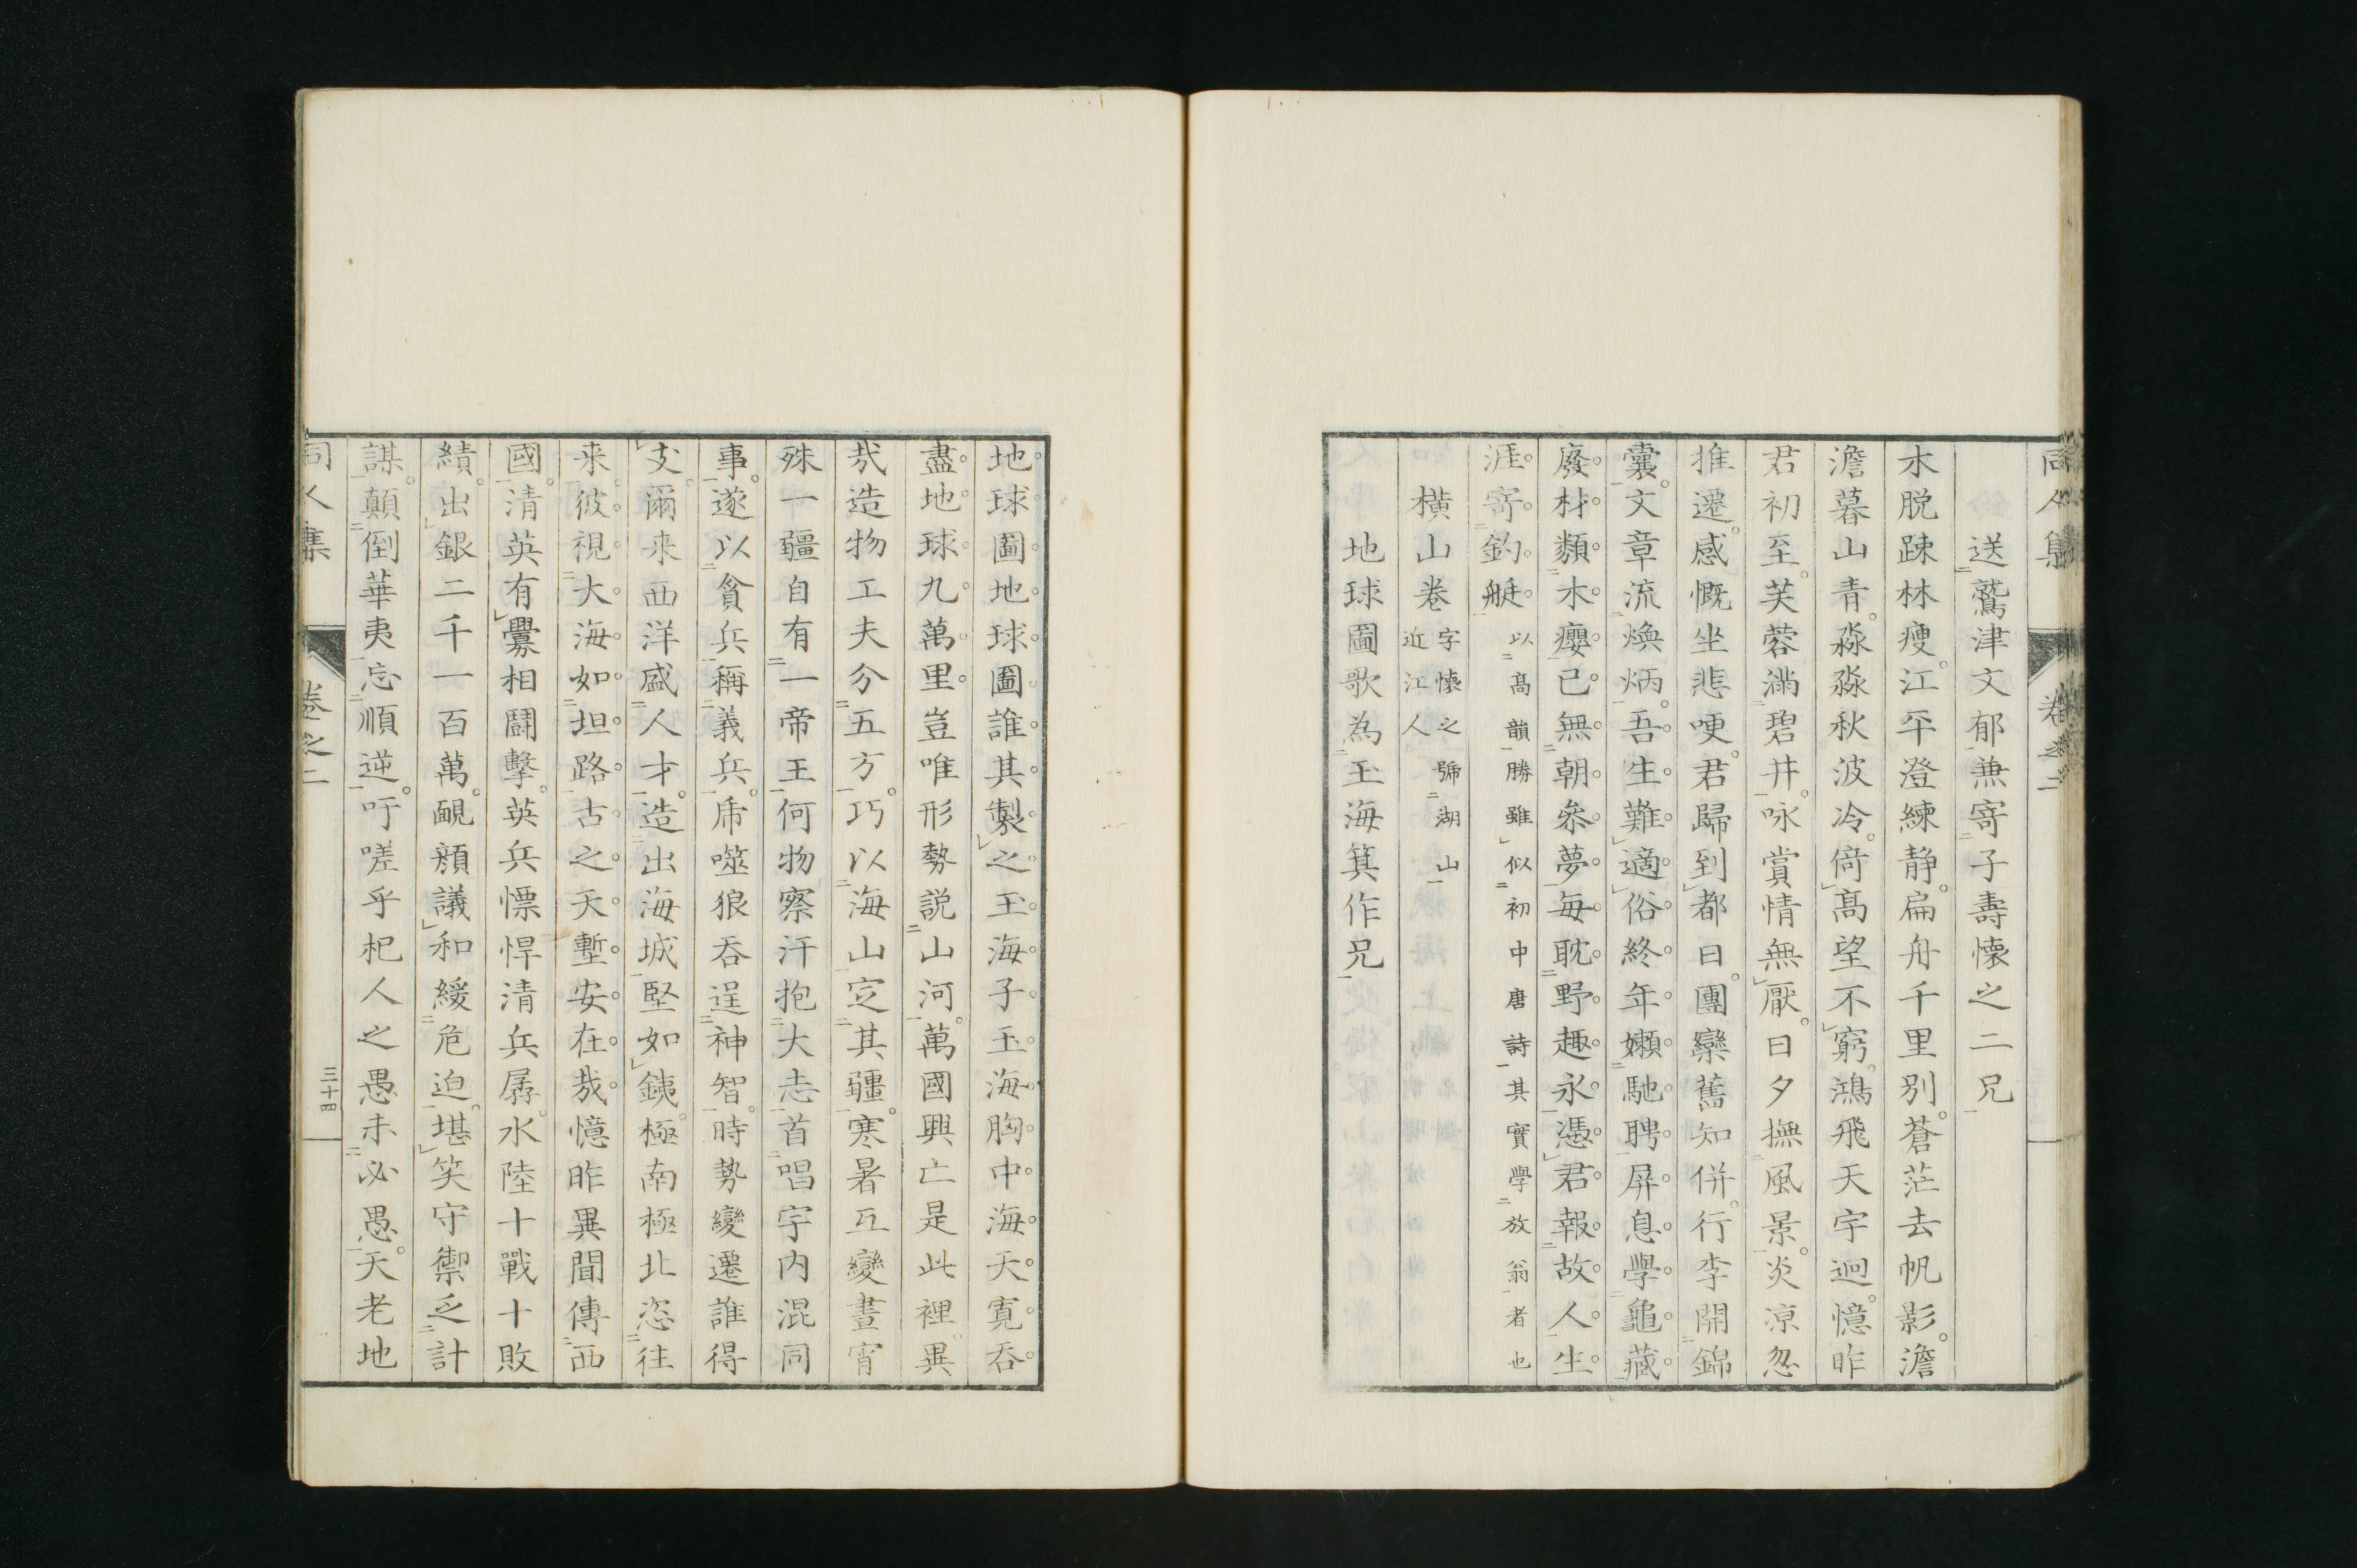 同人集 卷之二
送鷲津文郁兼寄子壽懷之二兄
木脱踈林瘦江平澄練静扁舟千里別蒼茫去帆影澹
澹暮山青淼淼秋波冷倚髙望不窮鴻飛天宇迥憶昨
君初至芙蓉滿碧井咏賞情無厭日夕撫風景炎凉忽
推遷感慨坐悲哽君歸到都日團欒舊知併行李開錦
囊文章流煥炳吾生難適俗終年嬾馳聘屏息學龜藏
廢材纇木癭已無朝叅夢每耽野趣永憑君報故人生
涯寄釣艇 以髙韻勝雖似初中唐詩其實學放翁者也
橫山卷 字懷之號湖山
近江人
地球圖歌為玉海箕作兄
地球圖地球圖誰其製之玉海子玉海胸中海天寛呑
盡地球九萬里豈唯形勢説山河萬國興亡是此裡異
哉造物工夫分五方巧以海山定其疆寒暑互變晝宵
殊一疆自有一帝王何物察汗抱大志首唱宇内混同
事遂以貪兵稱義兵乕噬狼呑逞神智時勢變遷誰得
支爾来西洋盛人才造出海城堅如銕極南極北恣往
来彼視大海如坦路古之天塹安在哉憶昨異聞傳西
國清英有釁相鬪擊英兵慓悍清兵孱水陸十戰十敗
績出銀二千一百萬靦顔議和緩危迫堪笑守禦乏計
謀顛倒華夷忘順逆吁嗟乎杞人之愚未必愚天老地
同人集 卷之二 三十四